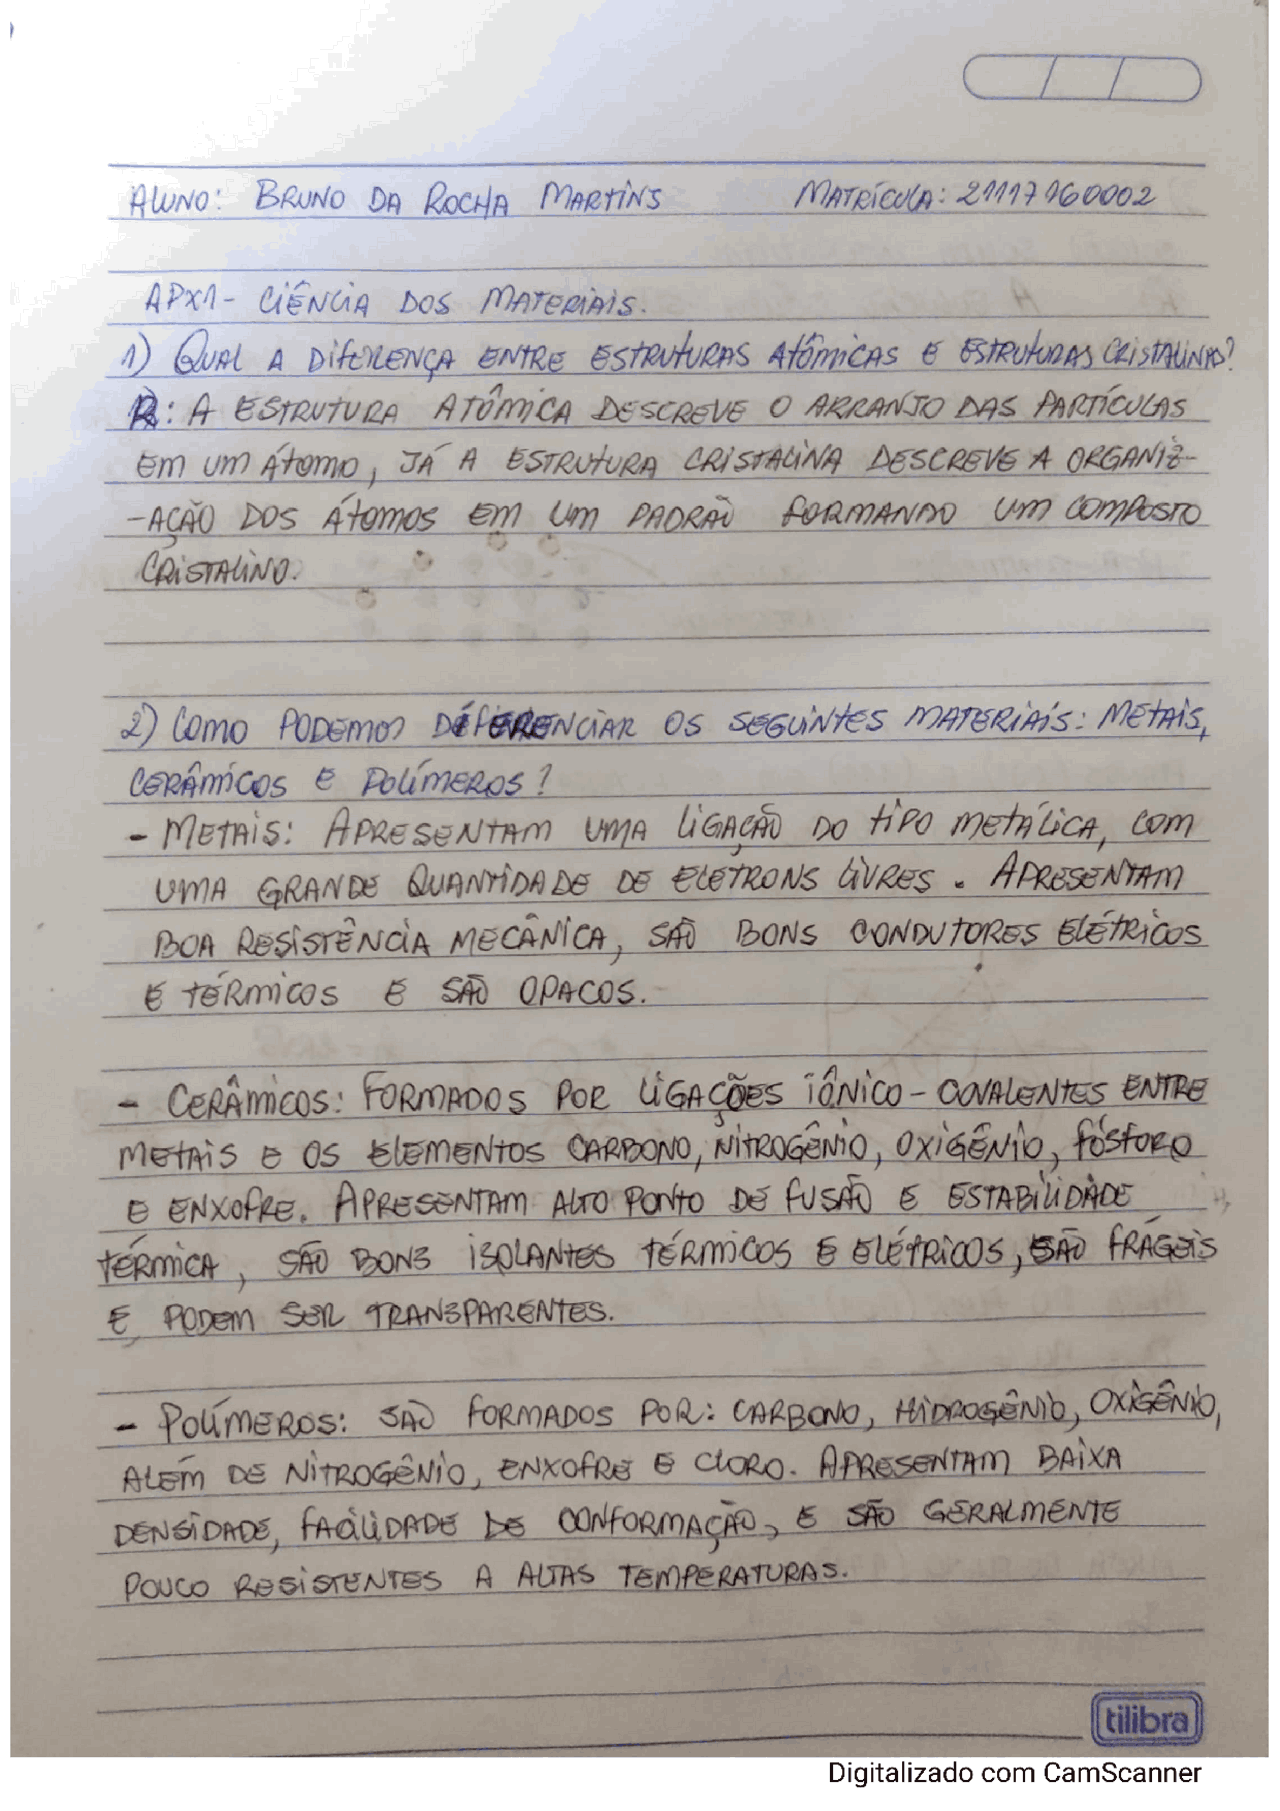 Aluno: Bruno da Rocha Martins Matrícula: 21117160002
APX1- Ciência dos Materiais.
1) Qual a diferença entre estruturas atômicas e estruturas cristalinas?
R: A estrutura atômica descreve o arranjo das partículas
em um átomo, já a estrutura cristalina descreve a organiz-
-ação dos átomos em um padrão formando um composto
cristalino.
2) Como podemos diferenciar os seguintes materiais: Metais,
cerâmicos e polímeros?
- Metais: Apresentam uma ligação do tipo metálica, com
uma grande quantidade de elétrons livres. Apresentam
boa resistência mecânica, são bons condutores elétricos
e térmicos e são opacos.
- Cerâmicos: Formados por ligações iônico-covalentes entre
metais e os elementos carbono, nitrogênio, oxigênio, fósforo
e enxofre. Apresentam alto ponto de fusão e estabilidade
térmica, são bons isolantes térmicos e elétricos, são frágeis
e podem ser transparentes.
- Polímeros: são formados por: carbono, hidrogênio, oxigênio,
além de nitrogênio, enxofre e cloro. Apresentam baixa
densidade, facilidade de conformação, e são geralmente
pouco resistentes a altas temperaturas.
tilibra
Digitalizado com CamScanner